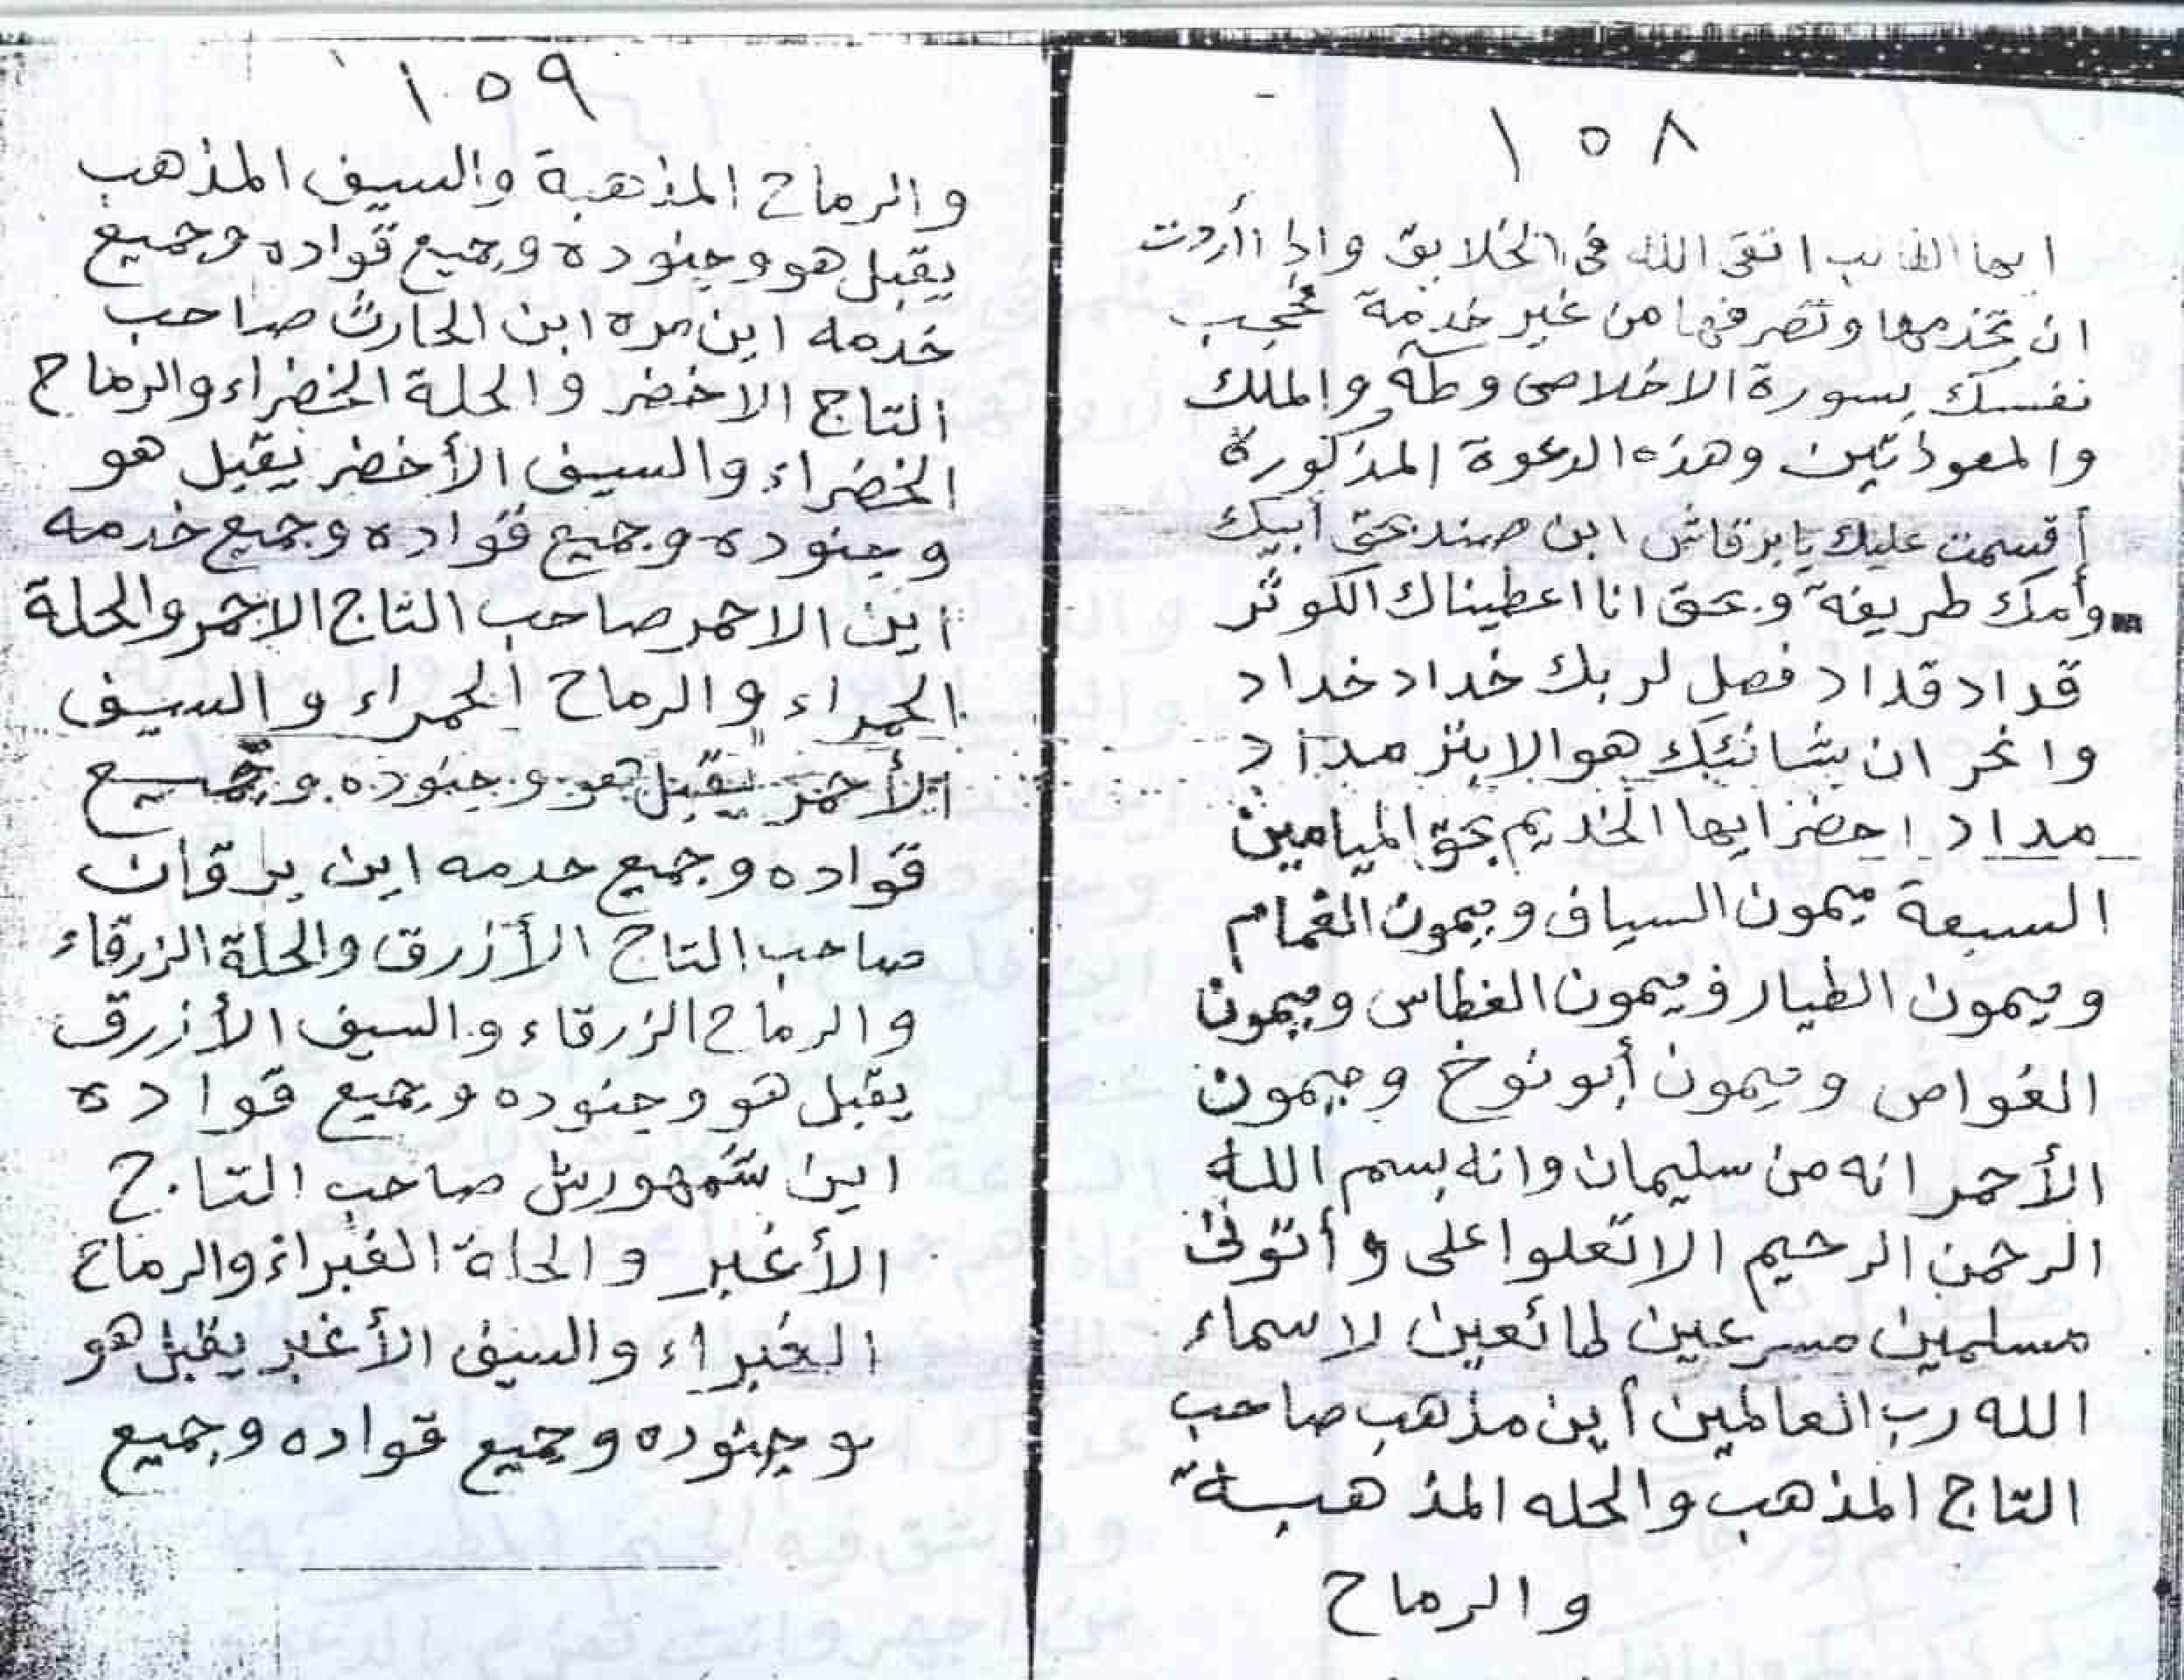 ١٥٨
ايها الطالب اتقى الله فى الخلايق واذا أردت
ان تخدمها وتصرفها من غير خدمة تحجب
نفسك بسورة الاخلاص وطه والملك
والمعوذتين وهذه الدعوة المذكورة
أقسمت عليك يا برقان ابن صند بحق أبيك
وأمك طريفة وبحق انا اعطيناك الكوثر
قداد قداد فصل لربك خداد خداد
وانحر ان شانئك هو الابتر مداد
مداد احضر ايها الخديم بحق الميامين
السبعة ميمون السياف وميمون الغمام
وميمون الطيار وميمون الغطاس وميمون
الغواص وميمون أبو نوخ وميمون
الأحمر انه من سليمان وانه بسم الله
الرحمن الرحيم الا تعلوا على وأتونى
مسلمين مسرعين طائعين لاسماء
الله رب العالمين أين مذهب صاحب
التاج المذهب والحله المذهبة
والرماح
١٥٩
والرماح المذهبة والسيف المذهب
يقبل هو وجنوده وجميع قواده وجميع
خدمه اين مره ابن الحارث صاحب
التاج الاخضر والحلة الخضراء والرماح
الخضراء والسيف الأخضر يقبل هو
وجنوده وجميع قواده وجميع خدمه
اين الاحمر صاحب التاج الاحمر والحلة
الحمراء والرماح الحمراء والسيف
الأحمر يقبل هو وجنوده وجميع
قواده وجميع خدمه اين برقان
صاحب التاج الأزرق والحلة الزرقاء
والرماح الزرقاء والسيف الأزرق
يقبل هو وجنوده وجميع قواده
اين شمهورش صاحب التاج
الأغبر والحلة الغبراء والرماح
الغبراء والسيف الأغبر يقبل هو
وجنوده وجميع قواده وجميع